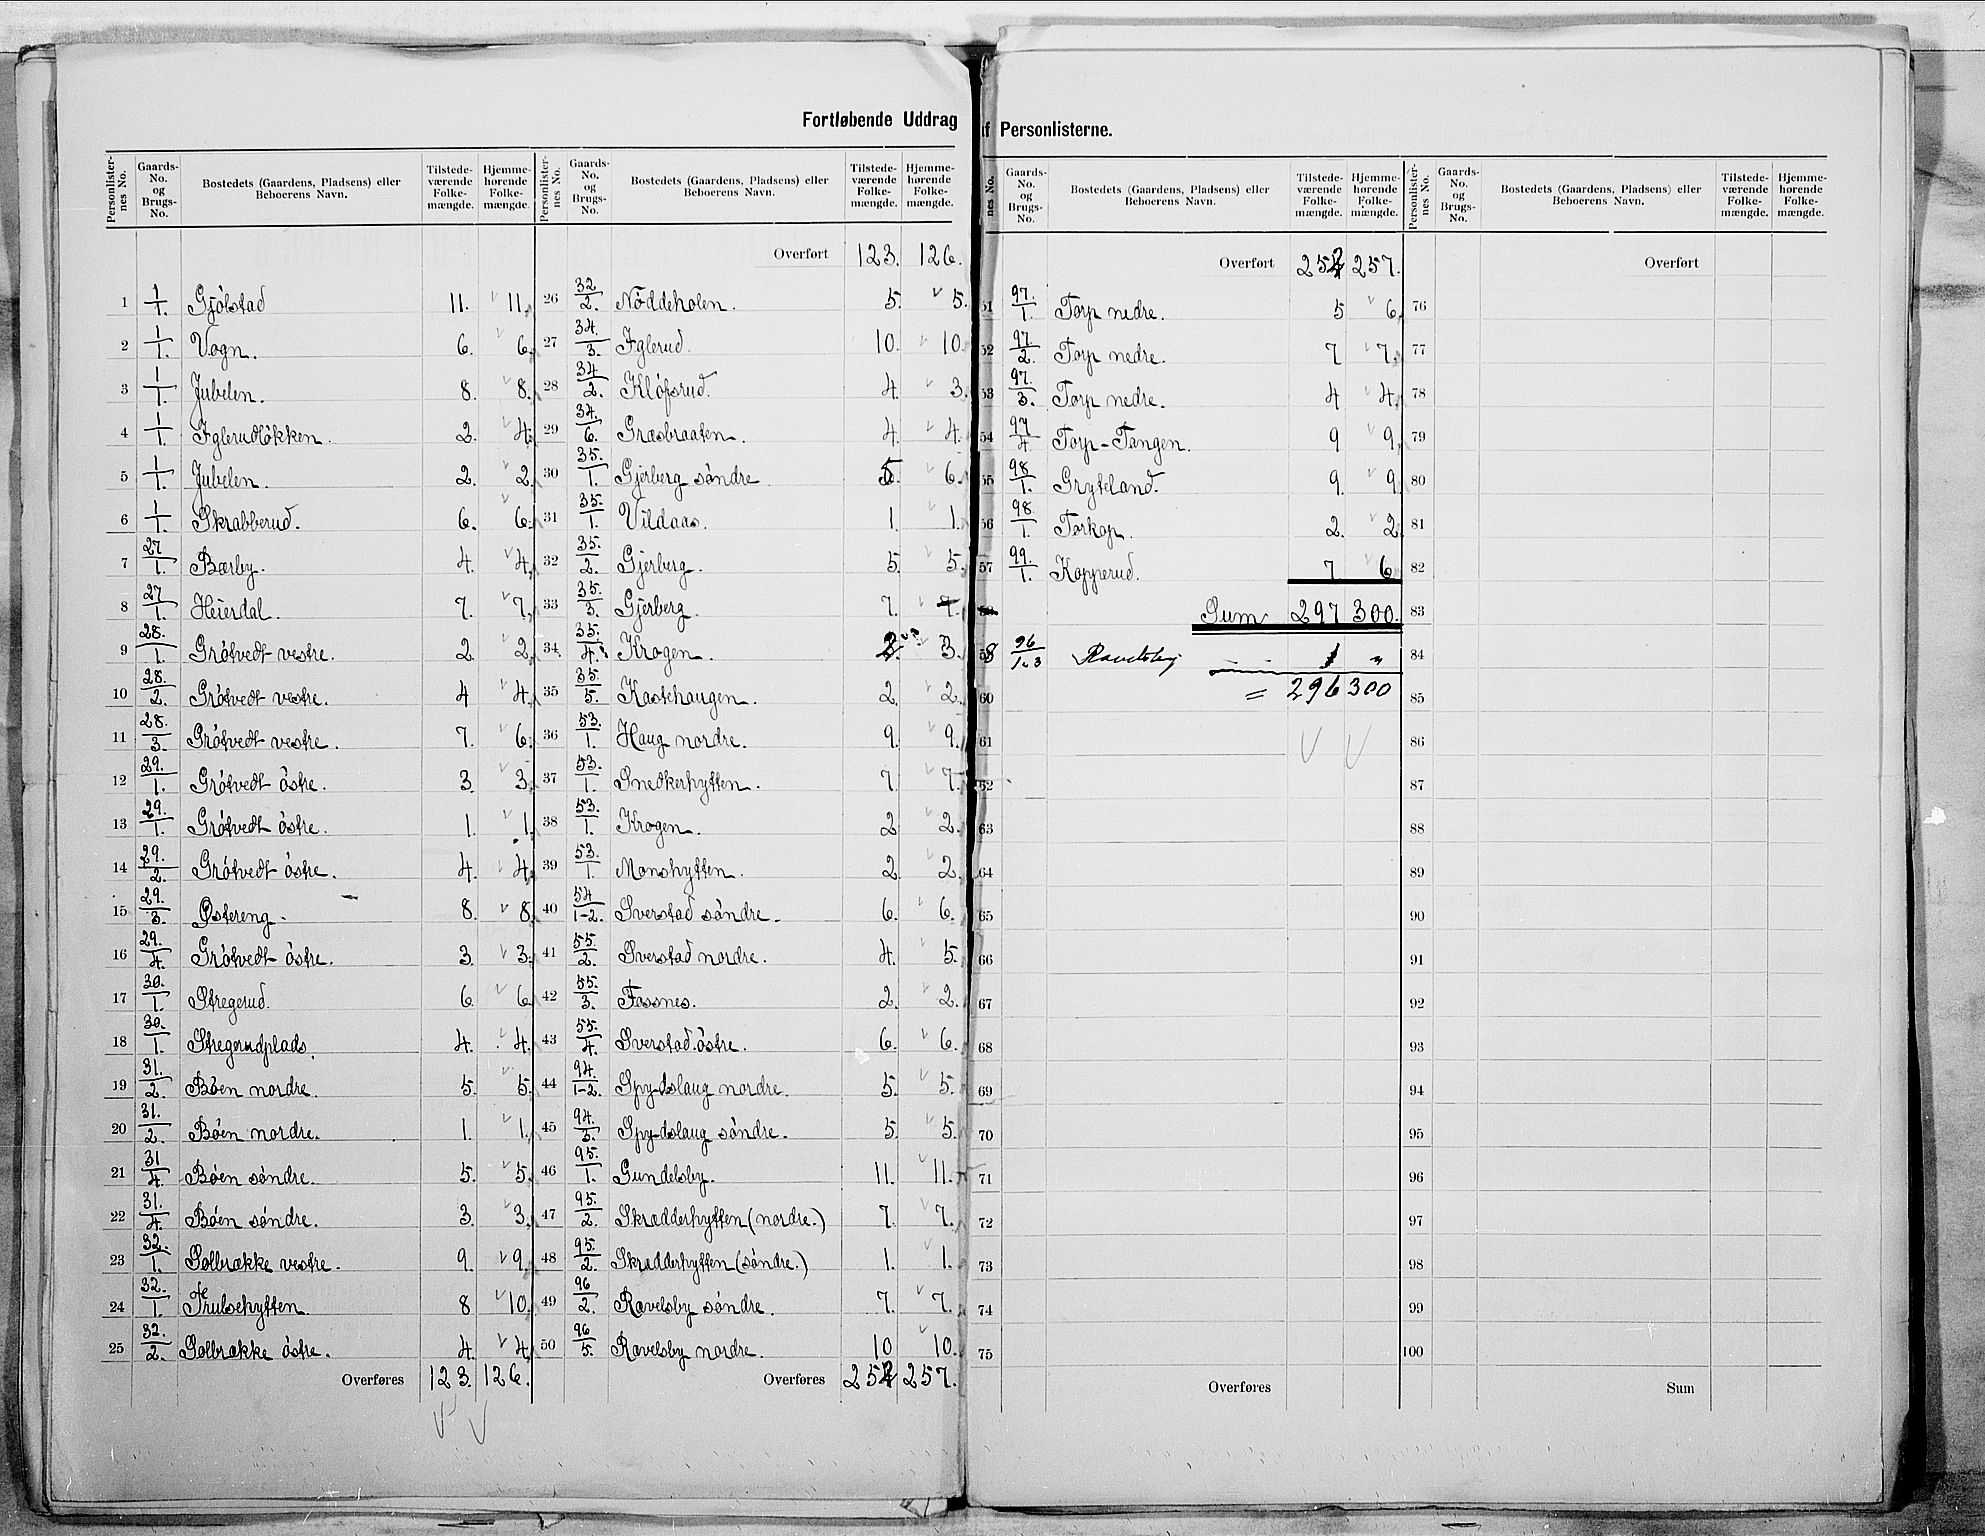 Fortløbende Uddrag af Personlisterne.
Personlister-nes No. | Gaards-No. og Brugs-No. | Bostedets (Gaardens, Pladsens) eller Beboerens Navn. | Tilstede-værende Folke-mængde. | Hjemme-hørende Folke-mængde.
1 1/1. Gjölstad 11. 11.
2 1/1. Vogn. 6. 6.
3 1/1. Jubelen. 8. 8.
4 1/1. Iglerudlökken. 2. 4.
5 1/1. Jubelen. 2. 2.
6 1/1. Skrabberud. 6. 6.
7 27/1. Bærby. 4. 4.
8 27/1. Heierdal. 7. 7.
9 28./1. Grötvedt vestre. 2. 2.
10 28./2. Grötvedt vestre. 4 4.
11 28./3. Grötvedt vestre. 7. 6.
12 29./1. Grötvedt östre. 3. 3.
13 29./1. Grötvedt östre. 1. 1.
14 29./2. Grötvedt östre. 4. 4.
15 29./3. Östereng. 8. 8.
16 29./4. Grötvedt östre. 3. 3.
17 30./1. Stregerud. 6 6.
18 30./1. Stregerudplads. 4. 4.
19 31./2. Böen nordre. 5. 5.
20 31./2. Böen nordre. 1. 1.
21 31/4. Böen söndre. 5. 5.
22 31./4. Böen söndre. 3. 3.
23 32./1. Solbrække vestre. 9. 9.
24 32./1. Trulsehytten. 8 10.
25 32./2. Solbrække östre. 4. 4.
Overføres 123. 126.
Personlister-nes No. | Gaards-No. og Brugs-No. | Bostedets (Gaardens, Pladsens) eller Beboerens Navn. | Tilstede-værende Folke-mængde. | Hjemme-hørende Folke-mængde.
Overført 123. 126.
26 32/2. Nöddeholen. 5. 5.
27 34./3. Iglerud. 10. 10.
28 34/2. Klöfsrud. 4. 3.
29 34./6. Græsbraaten. 4. 4.
30 35./1. Gjerberg söndre 5. 6.
31 35./1. Vildaas. 1. 1.
32 35./2. Gjerberg. 5. 5.
33 35./3. Gjerberg. 7. 7.
34 35./4. Krogen. 2. 3.
35 35./5. Kastehaugen. 2. 2.
36 53./1. Haug nordre. 9. 9.
37 53./1. Snedkerhytten. 7 7.
38 53./1. Krogen. 2 2.
39 53./1. Monshytten. 2 2.
40 54/1-2. Sverstad söndre. 6. 6.
41 55./2. Sverstad nordre. 4. 5.
42 55./3. Fossnes. 2. 2.
43 55./4. Sverstad östre. 6. 6.
44 94./1-2. Spydslaug nordre. 5. 5.
45 94./3. Spydslaug söndre. 5 5.
46 95./1. Gundelsby. 11. 11.
47 95./2. Skrædderhytten (nordre.) 7. 7.
48 95./2. Skrædderhytten (söndre.) 1. 1.
49 96/2. Ravelsby söndre. 7. 7.
50 96/5. Ravelsby nordre. 10 10.
Overføres 252 257.
nes No. | Gaards-No. og Brugs-No. | Bostedets (Gaardens, Pladsens) eller Beboerens Navn. | Tilstede-værende Folke-mængde. | Hjemme-hørende Folke-mængde.
Overført 252 257.
51 97./1. Torp nedre. 5 6.
52 97./2. Torp nedre. 7 7.
53 97/3. Torp nedre. 4 4.
54 97/4 Torp-Tangen. 9 9.
55 98/1. Gryteland. 9. 9.
56 98./1. Torkop. 2. 2
57 99./1. Kopperud. 7. 6
Sum 297 300.
58 96/1 o 3 Ravelsby 1 "
= 296 300
60
61
62
63
64
65
66
67
68
69
70
71
72
73
74
75
Overføres
Personlister-nes No. | Gaards-No. og Brugs-No. | Bostedets (Gaardens, Pladsens) eller Beboerens Navn. | Tilstede-værende Folke-mængde. | Hjemme-hørende Folke-mængde.
Overført
76
77
78
79
80
81
82
83
84
85
86
87
88
89
90
91
92
93
94
95
96
97
98
99
100
Sum